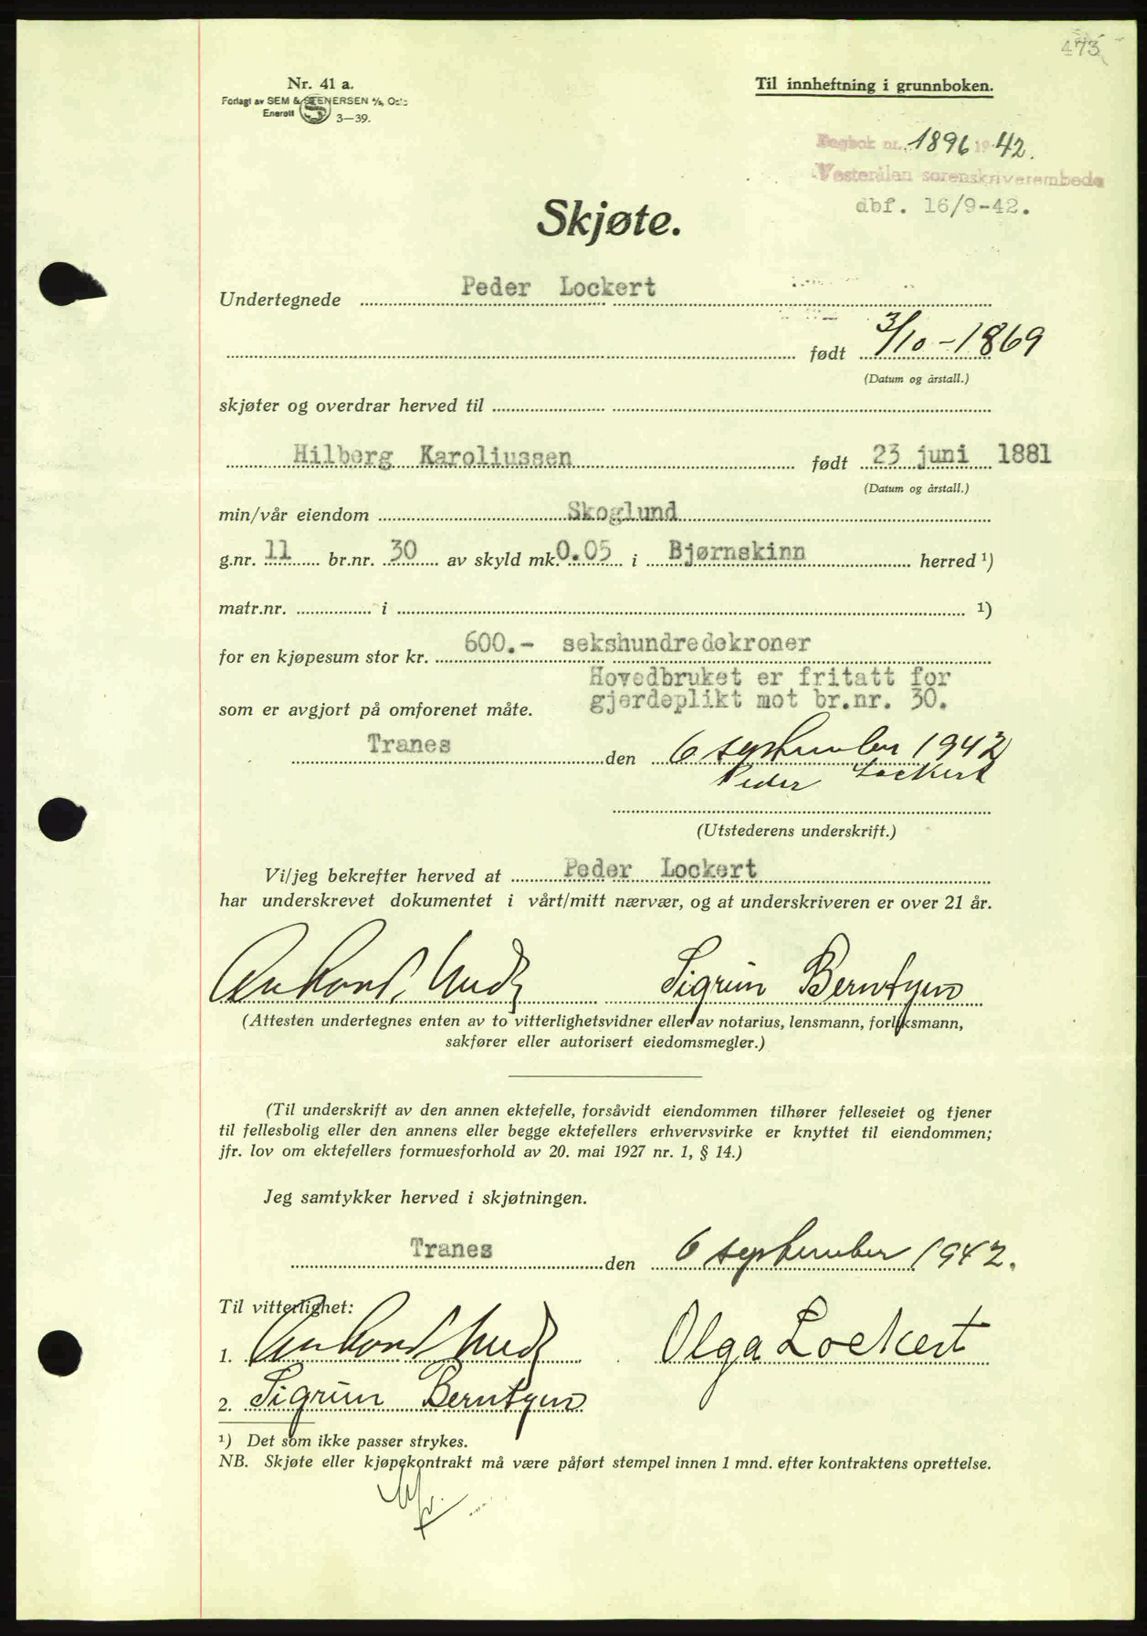 473
Nr. 41 a.
Forlagt av SEM & STENERSEN A/S, Oslo
Enerett
3—39.
Til innheftning i grunnboken.
Dagbok nr. 1896 1942.
Vesterålen sorenskriverembede
dbf. 16/9-42.
Skjøte.
Undertegnede Peder Lockert
født 3/10-1869
(Datum og årstall.)
skjøter og overdrar herved til
Hilberg Karoliussen født 23 juni 1881
(Datum og årstall.)
min/vår eiendom Skoglund
g.nr. 11 br.nr. 30 av skyld mk. 0.05 i Bjørnskinn herred ¹)
matr.nr. i ¹)
for en kjøpesum stor kr. 600.- sekshundredekroner
Hovedbruket er fritatt for
som er avgjort på omforenet måte. gjerdeplikt mot br.nr. 30.
Tranes den 6 september 1942
Peder Lockert
(Utstederens underskrift.)
Vi/jeg bekrefter herved at Peder Lockert
har underskrevet dokumentet i vårt/mitt nærvær, og at underskriveren er over 21 år.
Sigrun Berntzen
(Attesten undertegnes enten av to vitterlighetsvidner eller av notarius, lensmann, forliksmann,
sakfører eller autorisert eiedomsmegler.)
(Til underskrift av den annen ektefelle, forsåvidt eiendommen tilhører felleseiet og tjener
til fellesbolig eller den annens eller begge ektefellers erhvervsvirke er knyttet til eiendommen;
jfr. lov om ektefellers formuesforhold av 20. mai 1927 nr. 1, § 14.)
Jeg samtykker herved i skjøtningen.
Tranes den 6 september 1942.
Til vitterlighet:
1. Olga Lockert
2. Sigrun Berntzen
¹) Det som ikke passer strykes.
NB. Skjøte eller kjøpekontrakt må være påført stempel innen 1 mnd. efter kontraktens oprettelse.